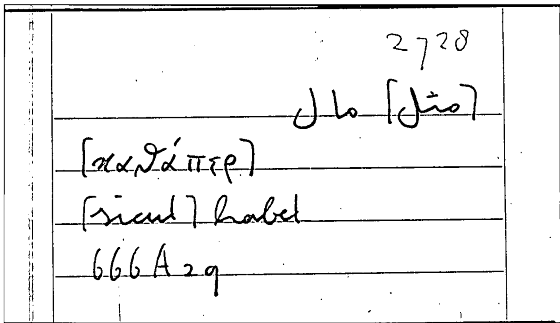 2728
[مثل] مال
[καθάπερ]
[sicut] habet
666A29